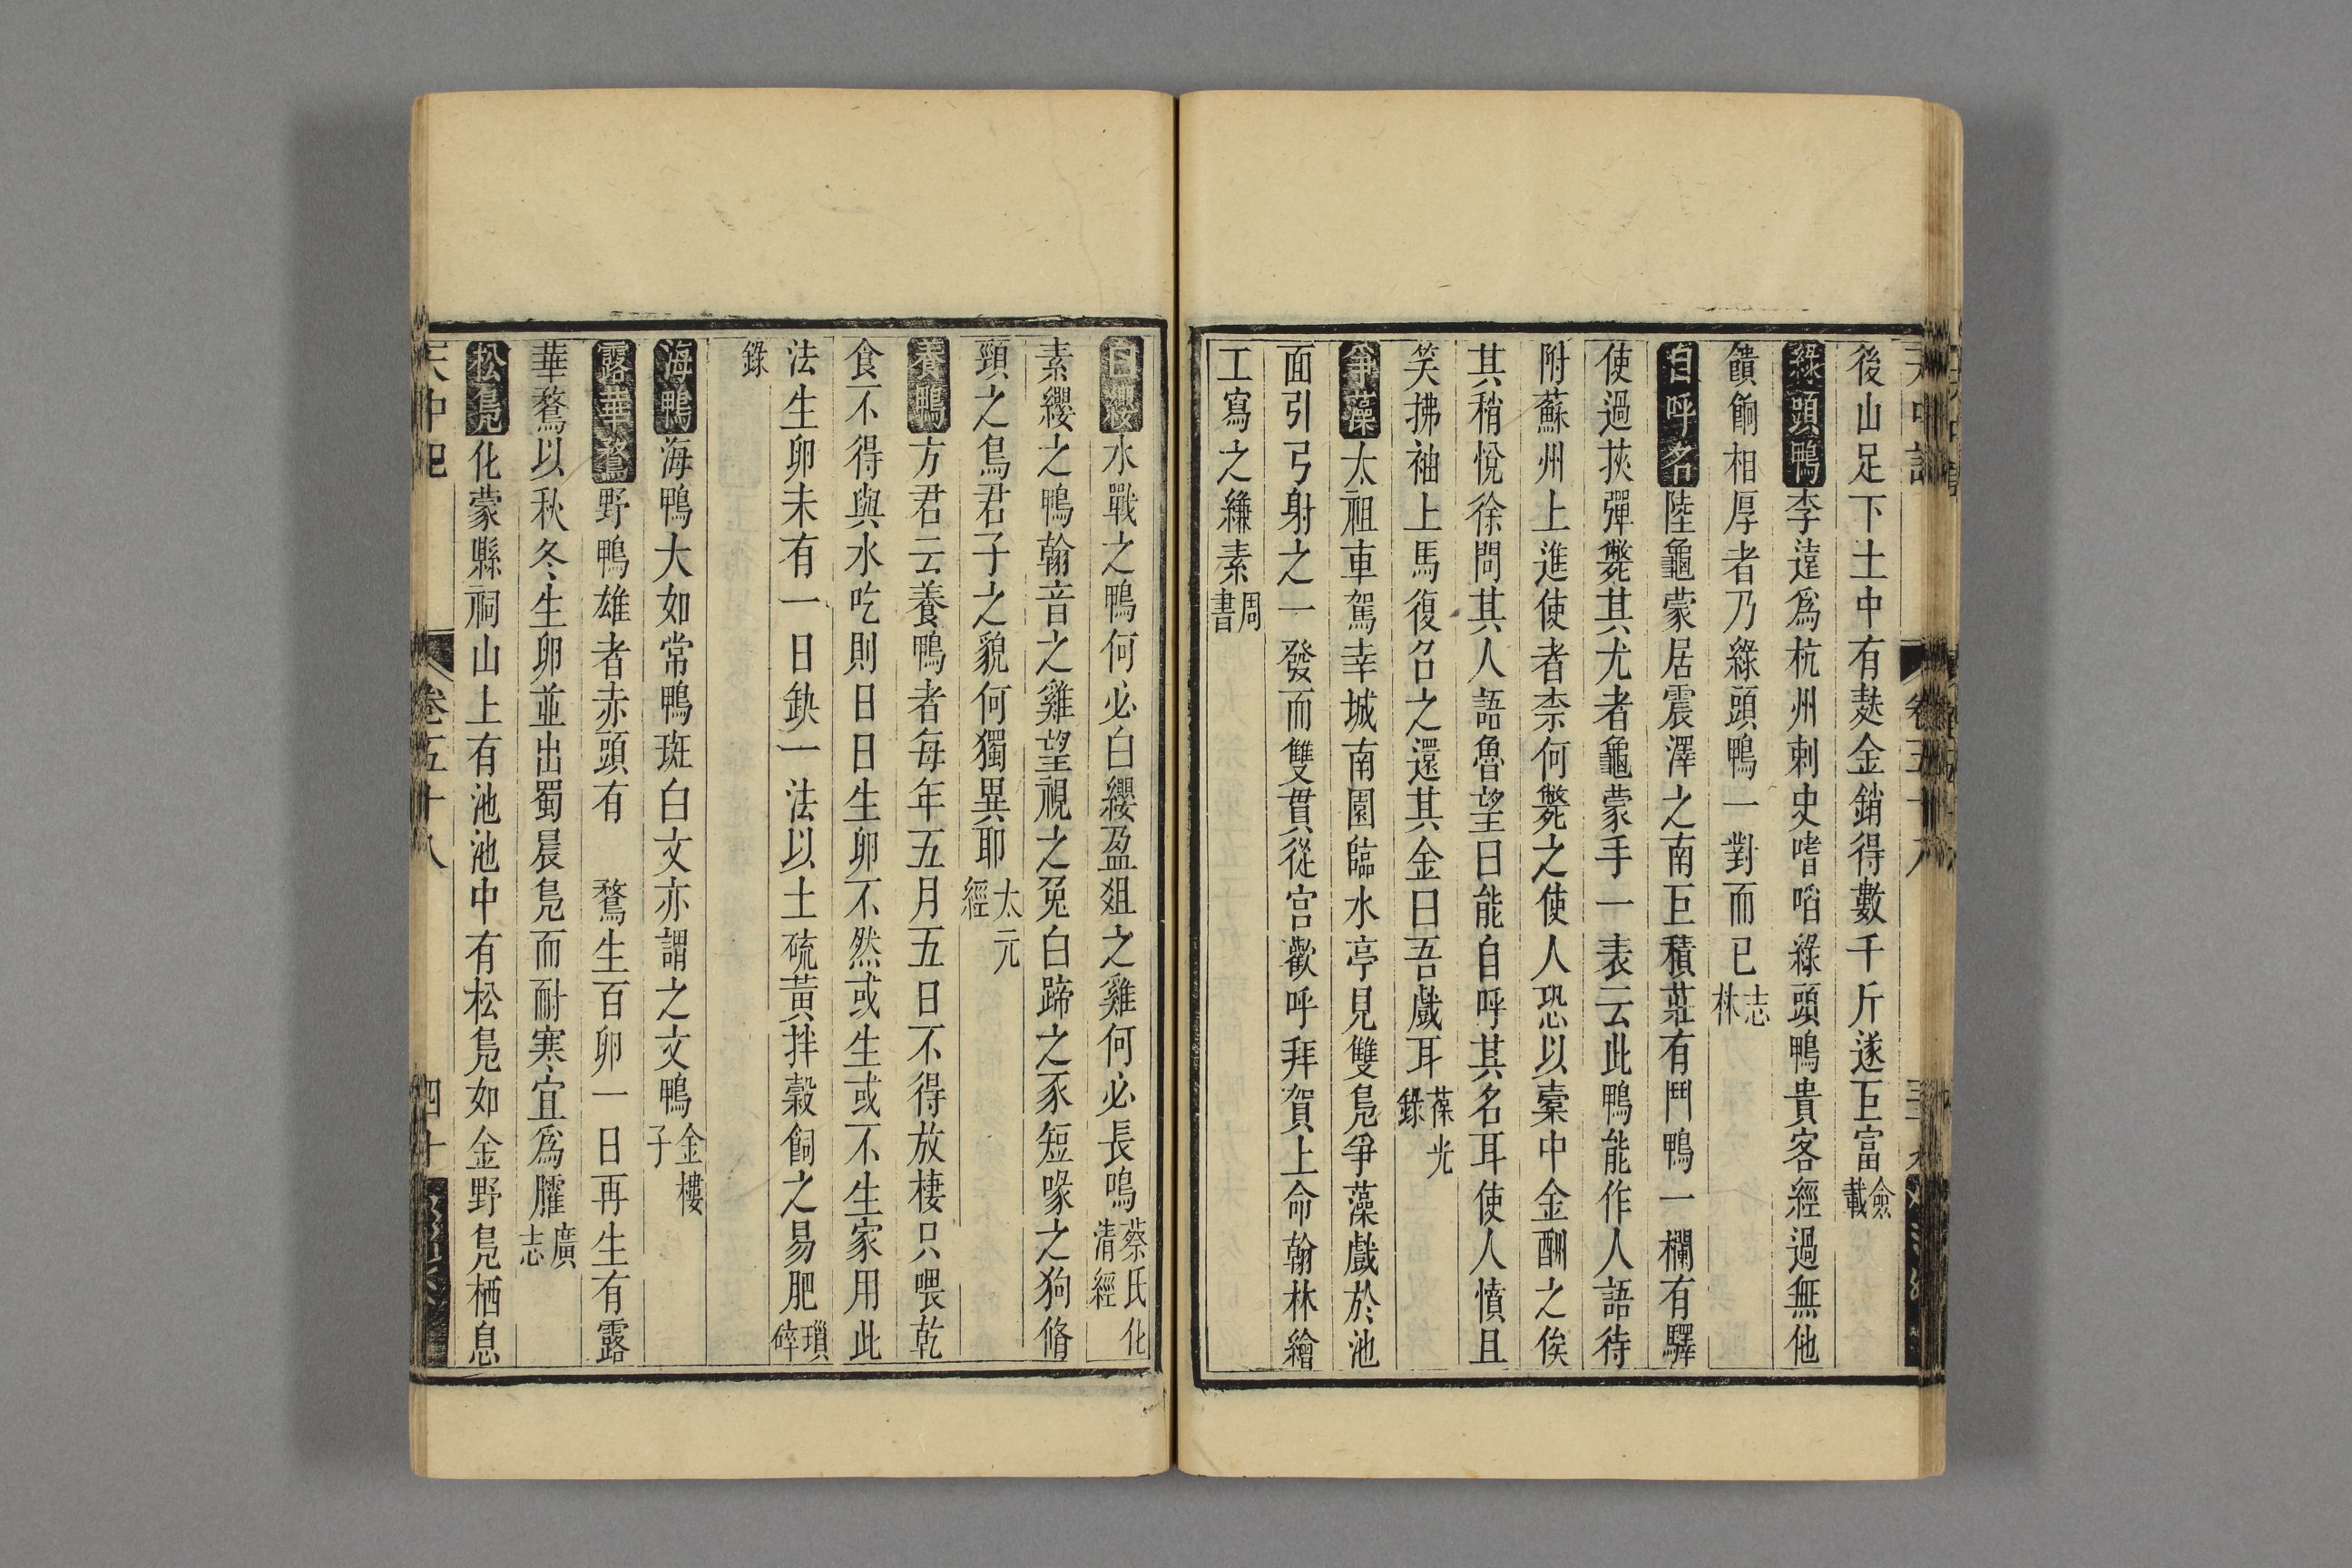 後山足下土中有麩金銷得數千斤遂巨富僉載
綠頭鴨李遠爲杭州刺史嗜啗綠頭鴨貴客經過無他
饋餉相厚者乃綠頭鴨一對而已志林
自呼名陸龜蒙居震澤之南巨積莊有鬥鴨一欄有驛
使過挾彈斃其尤者龜蒙手一表云此鴨能作人語待
附蘇州上進使者柰何斃之使人恐以橐中金酬之俟
其稍悅徐問其人語魯望曰能自呼其名耳使人憤且
笑拂袖上馬復召之還其金曰吾戲耳葆光錄
爭藻太祖車駕幸城南園臨水亭見雙鳧爭藻戲於池
面引弓射之一發而雙貫從官歡呼拜賀上命翰林繪
工寫之縑素周書
白纓水戰之鴨何必白纓盈俎之雞何必長鳴蔡氏化清經
素纓之鴨翰音之雞望視之兔白蹄之豕短喙之狗脩
頸之鳥君子之貌何獨異耶太元經
養鴨方君云養鴨者每年五月五日不得放棲只喂乾
食不得與水吃則日日生卵不然或生或不生家用此
法生卵未有一日缺一法以土硫黃拌穀飼之易肥瑣碎
錄
海鴨海鴨大如常鴨斑白文亦謂之文鴨金樓子
露華鶩野鴨雄者赤頭有 鶩生百卵一日再生有露
華鶩以秋冬生卵並出蜀晨鳧而耐寒宜爲臛廣志
松鳧化蒙縣祠山上有池池中有松鳧如金野鳧栖息
天中記 卷五十八 四十